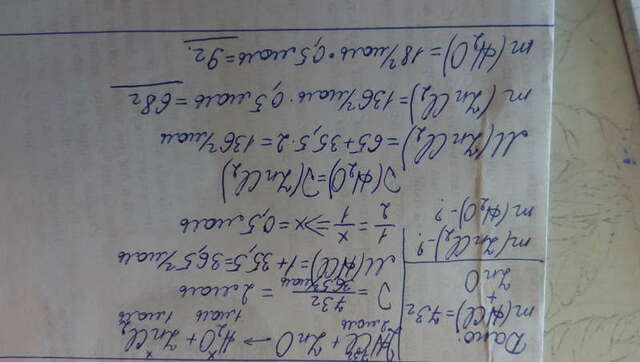 Дано:
m(HCl)=73г
+
ZnO
m(ZnCl₂)-?
m(H₂O)-?
2HCl + ZnO → H₂O + ZnCl₂
2моль 1моль 1моль
ν = 73г / 36,5г/моль = 2моль
M(HCl)=1+35,5=36,5г/моль
1/2 = x/1 ⇒ x=0,5моль
ν(H₂O)=ν(ZnCl₂)
M(ZnCl₂)=65+35,5·2=136г/моль
m(ZnCl₂)=136г/моль·0,5моль=68г
m(H₂O)=18г/моль·0,5моль=9г.